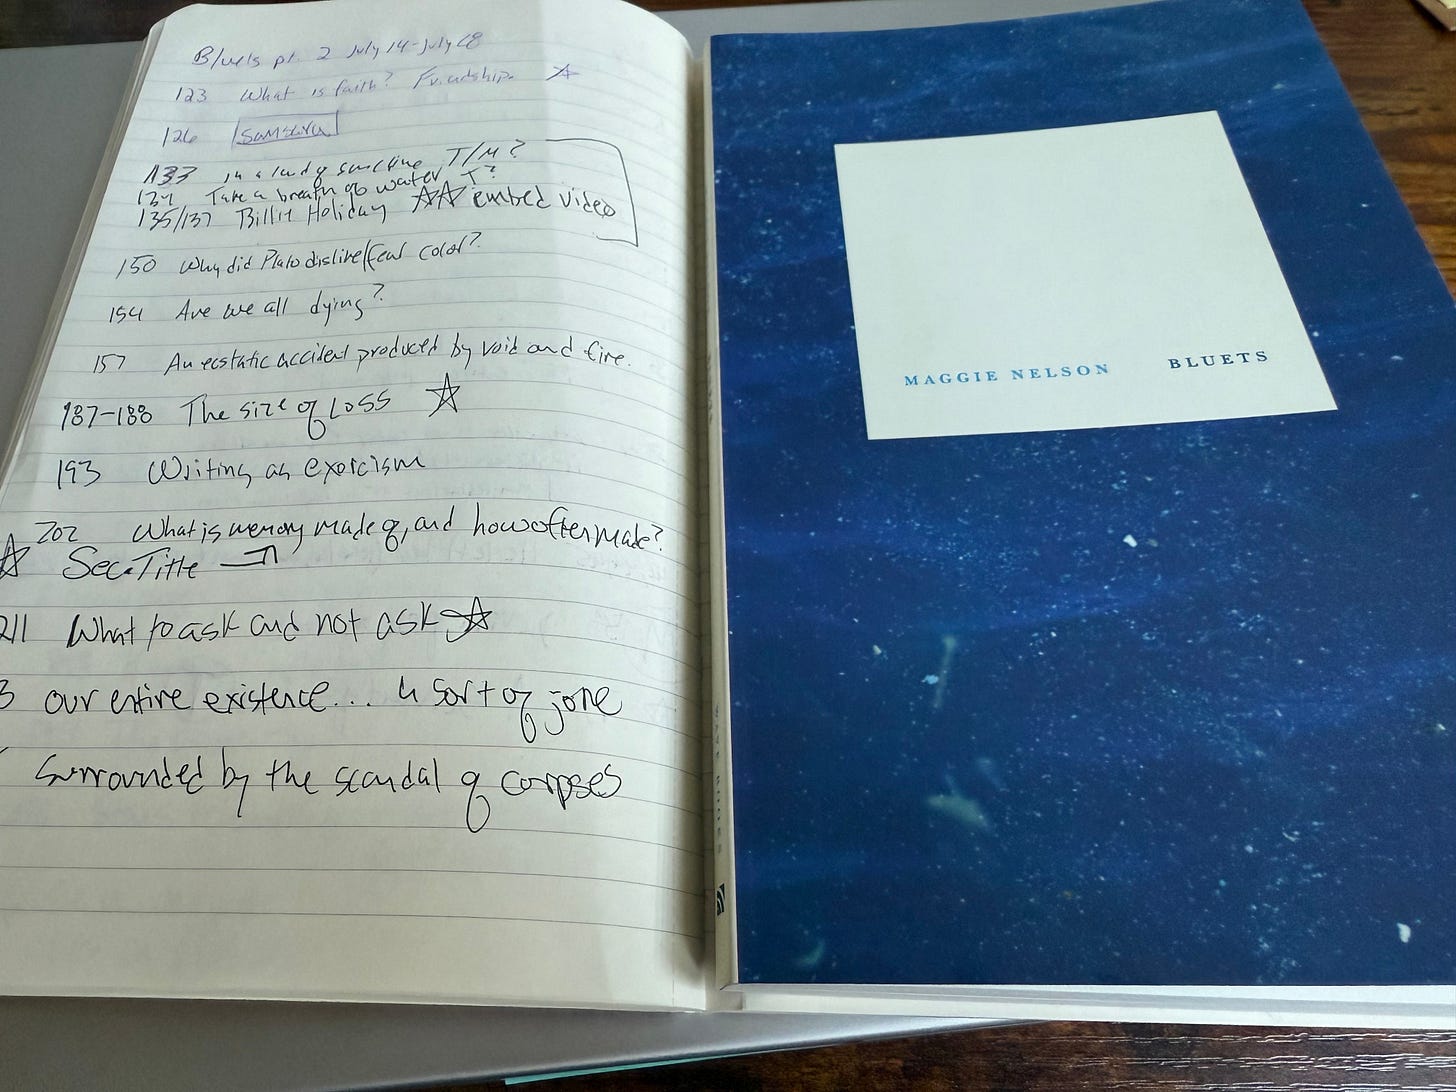 Bluets pt. 2 July 14-July 28
123 What is faith? Friendship.
126 Samsara
133 in a land of sunshine T/M?
134 Take a breath of water T?
135/137 Billie Holiday embed video
150 Why did Plato dislike/fear color?
154 Are we all dying?
157 An ecstatic accident produced by void and fire.
187-188 The size of Loss
193 Writing as exorcism
202 What is memory made of, and how often made?
See Title
211 What to ask and not ask
3 our entire existence... a sort of
Surrounded by the scandal of corpses
MAGGIE NELSON BLUETS